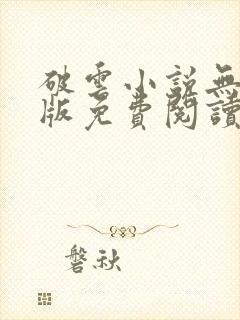 破雲小說無
版免費閱讀
磐秋